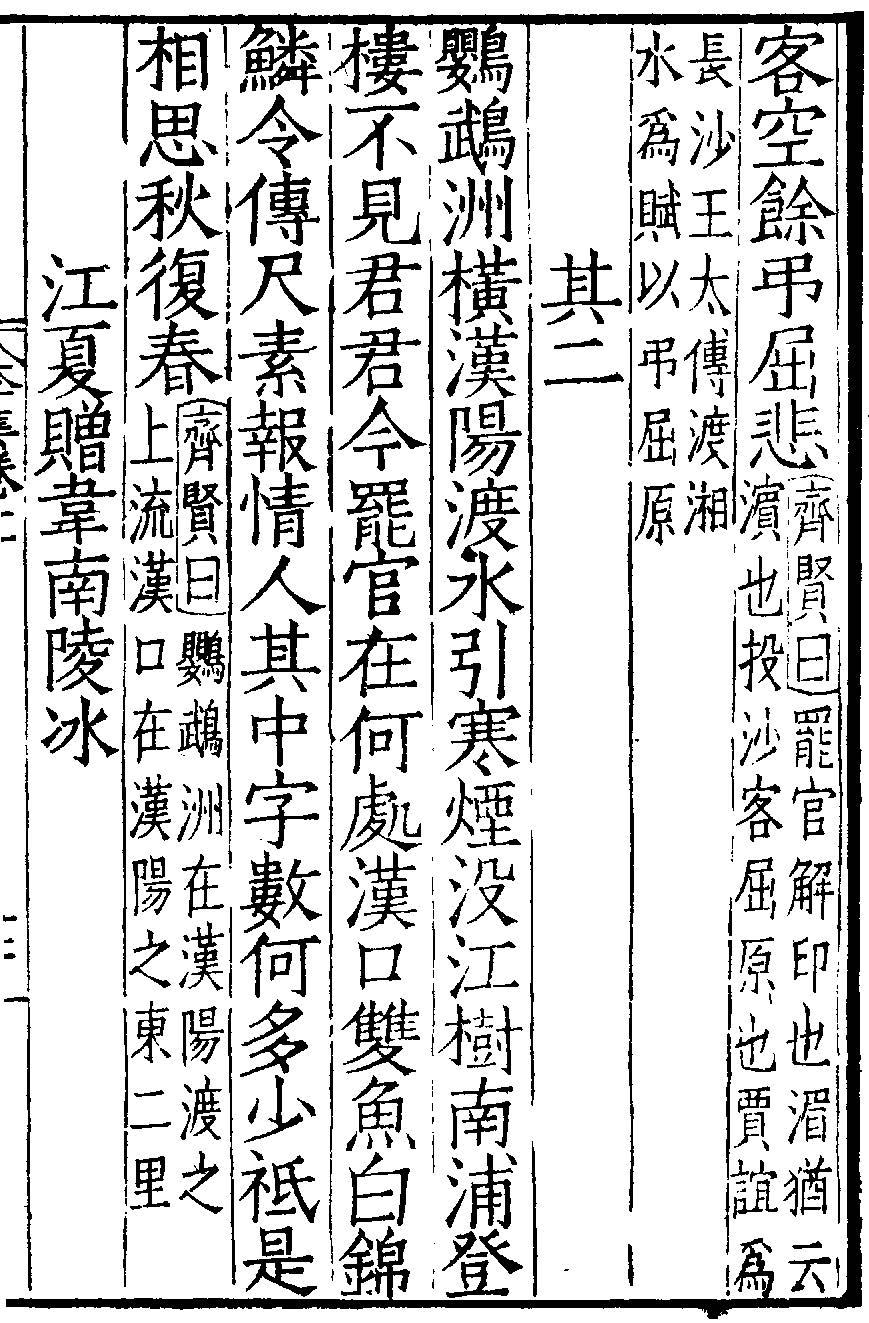 客空餘弔屈悲
齊賢曰罷官解印也湄猶云
濵也投沙客屈原也賈誼爲
長沙王太傅渡湘
水爲賦以弔屈原
其二
鸚鵡洲橫漢陽渡水引寒煙没江樹南浦登
樓不見君君今罷官在何處漢口雙魚白錦
鱗令傳尺素報情人其中字數何多少祗是
相思秋復春
齊賢曰鸚鵡洲在漢陽渡之
上流漢口在漢陽之東二里
江夏贈韋南陵冰